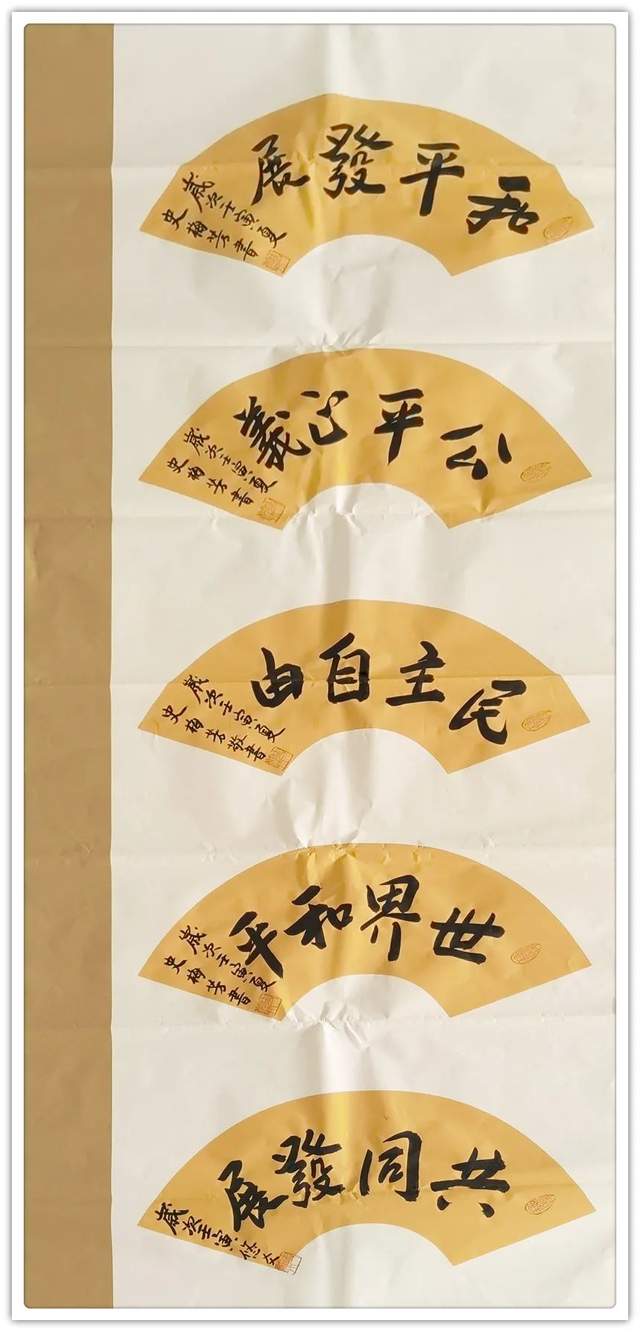 和平發展
歲次壬寅夏
史梅芳書
公平正義
歲次壬寅夏
史梅芳書
民主自由
歲次壬寅夏
史梅芳敬書
世界和平
歲次壬寅夏
史梅芳書
共同發展
歲次壬寅